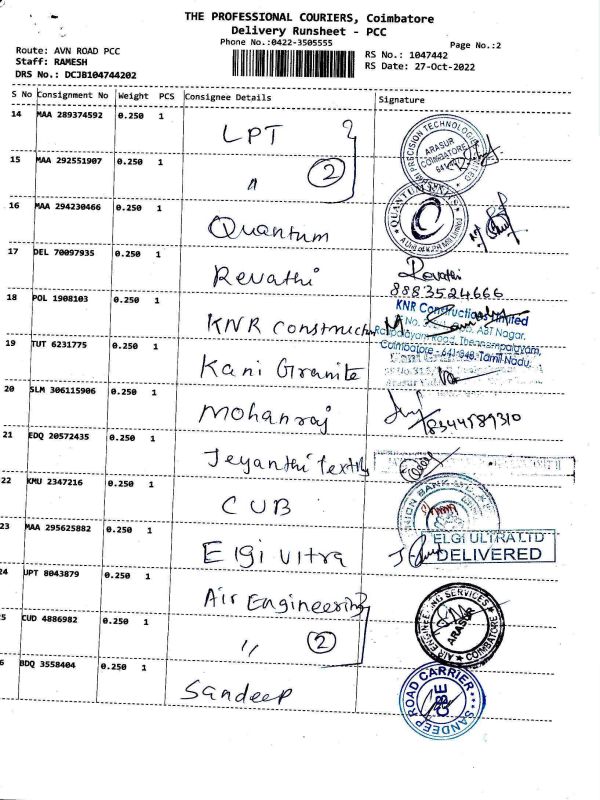 THE PROFESSIONAL COURIERS, Coimbatore
Delivery Runsheet - PCC
Phone No.:0422-3505555
Page No.:2
Route: AVN ROAD PCC
Staff: RAMESH
DRS No.: DCJB104744202
RS No.: 1047442
RS Date: 27-Oct-2022
S No Consignment No Weight PCS Consignee Details Signature
14 MAA 289374592 0.250 1 LPT
ARASUR COIMBATORE
15 MAA 292551907 0.250 1 " 2
16 MAA 294230466 0.250 1 Quantum
QUANTUM
17 DEL 70097935 0.250 1 Revathi Revathi
8883524666
18 POL 1908103 0.250 1 KNR construction
KNR Constructions Limited
Coimbatore - Tamil Nadu,
19 TUT 6231775 0.250 1 Kani Granite
20 SLM 306115906 0.250 1 Mohanraj 8344589310
21 EDQ 20572435 0.250 1 Jeyanthi Textile
22 KMU 2347216 0.250 1 CUB
UNION BANK
23 MAA 295625882 0.250 1 Elgi Ultra
ELGI ULTRA LTD
DELIVERED
24 UPT 8043879 0.250 1 Air Engineering
AIR ENGINEERING SERVICES ARASUR COIMBATORE
5 CUD 4886982 0.250 1 " 2
6 BDQ 3558404 0.250 1 Sandeep
SANDEEP ROAD CARRIER CBE